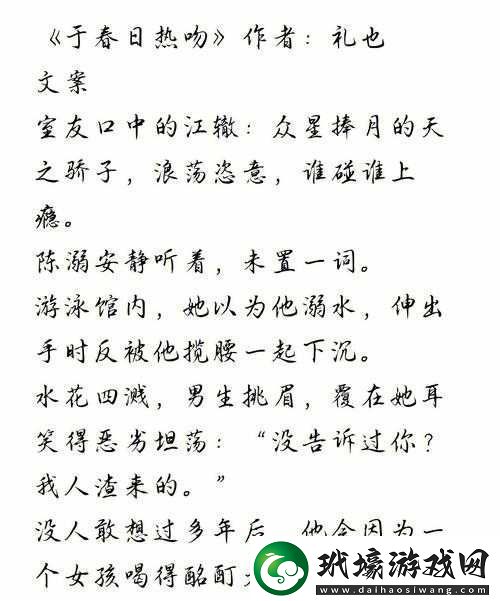 《于春日热吻》作者：礼也
文案
室友口中的江辙：众星捧月的天
之骄子，浪荡恣意，谁碰谁上
瘾。
陈溺安静听着，未置一词。
游泳馆内，她以为他溺水，伸出
手时反被他揽腰一起下沉。
水花四溅，男生挑眉，覆在她耳
笑得恶劣坦荡：“没告诉过你？
我人渣来的。”
没人敢想过多年后，他会因为一
个女孩喝得酩酊
玳壕游戏网
www.daihaosiwang.com